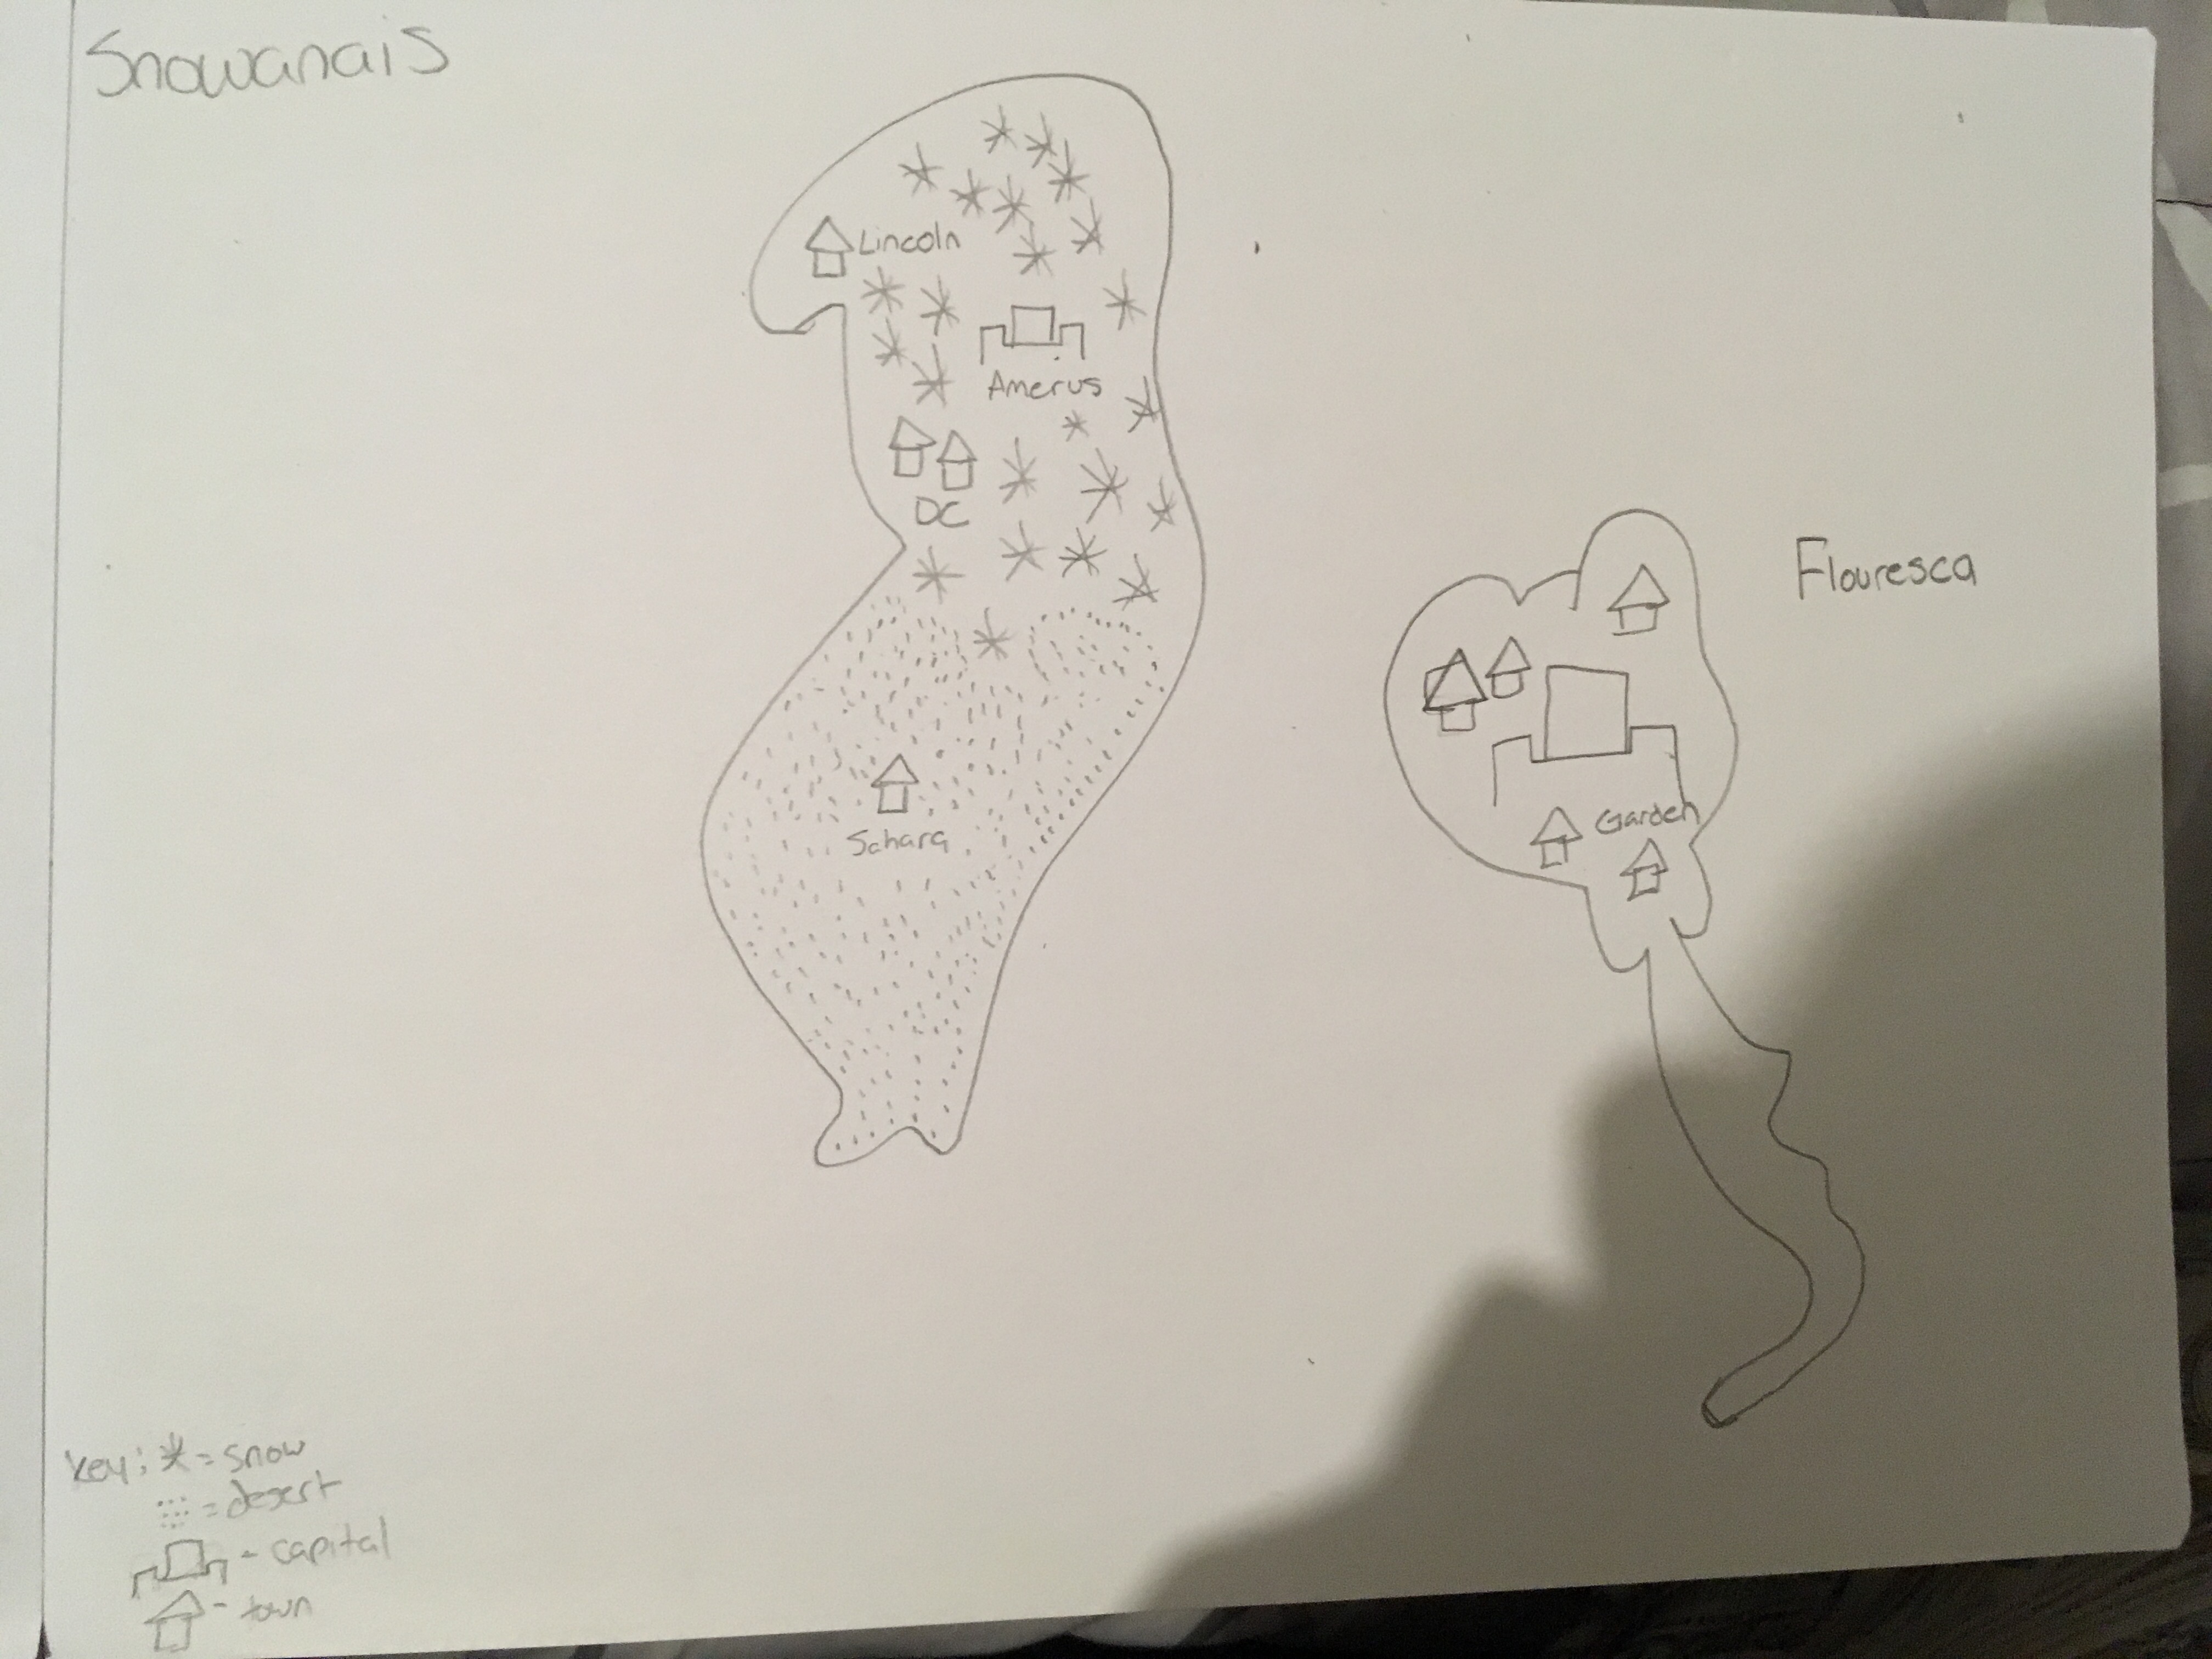 Snowanais
Lincoln
Amerus
DC
Flouresca
Sahara
Garden
key: = snow
= desert
- capital
- town